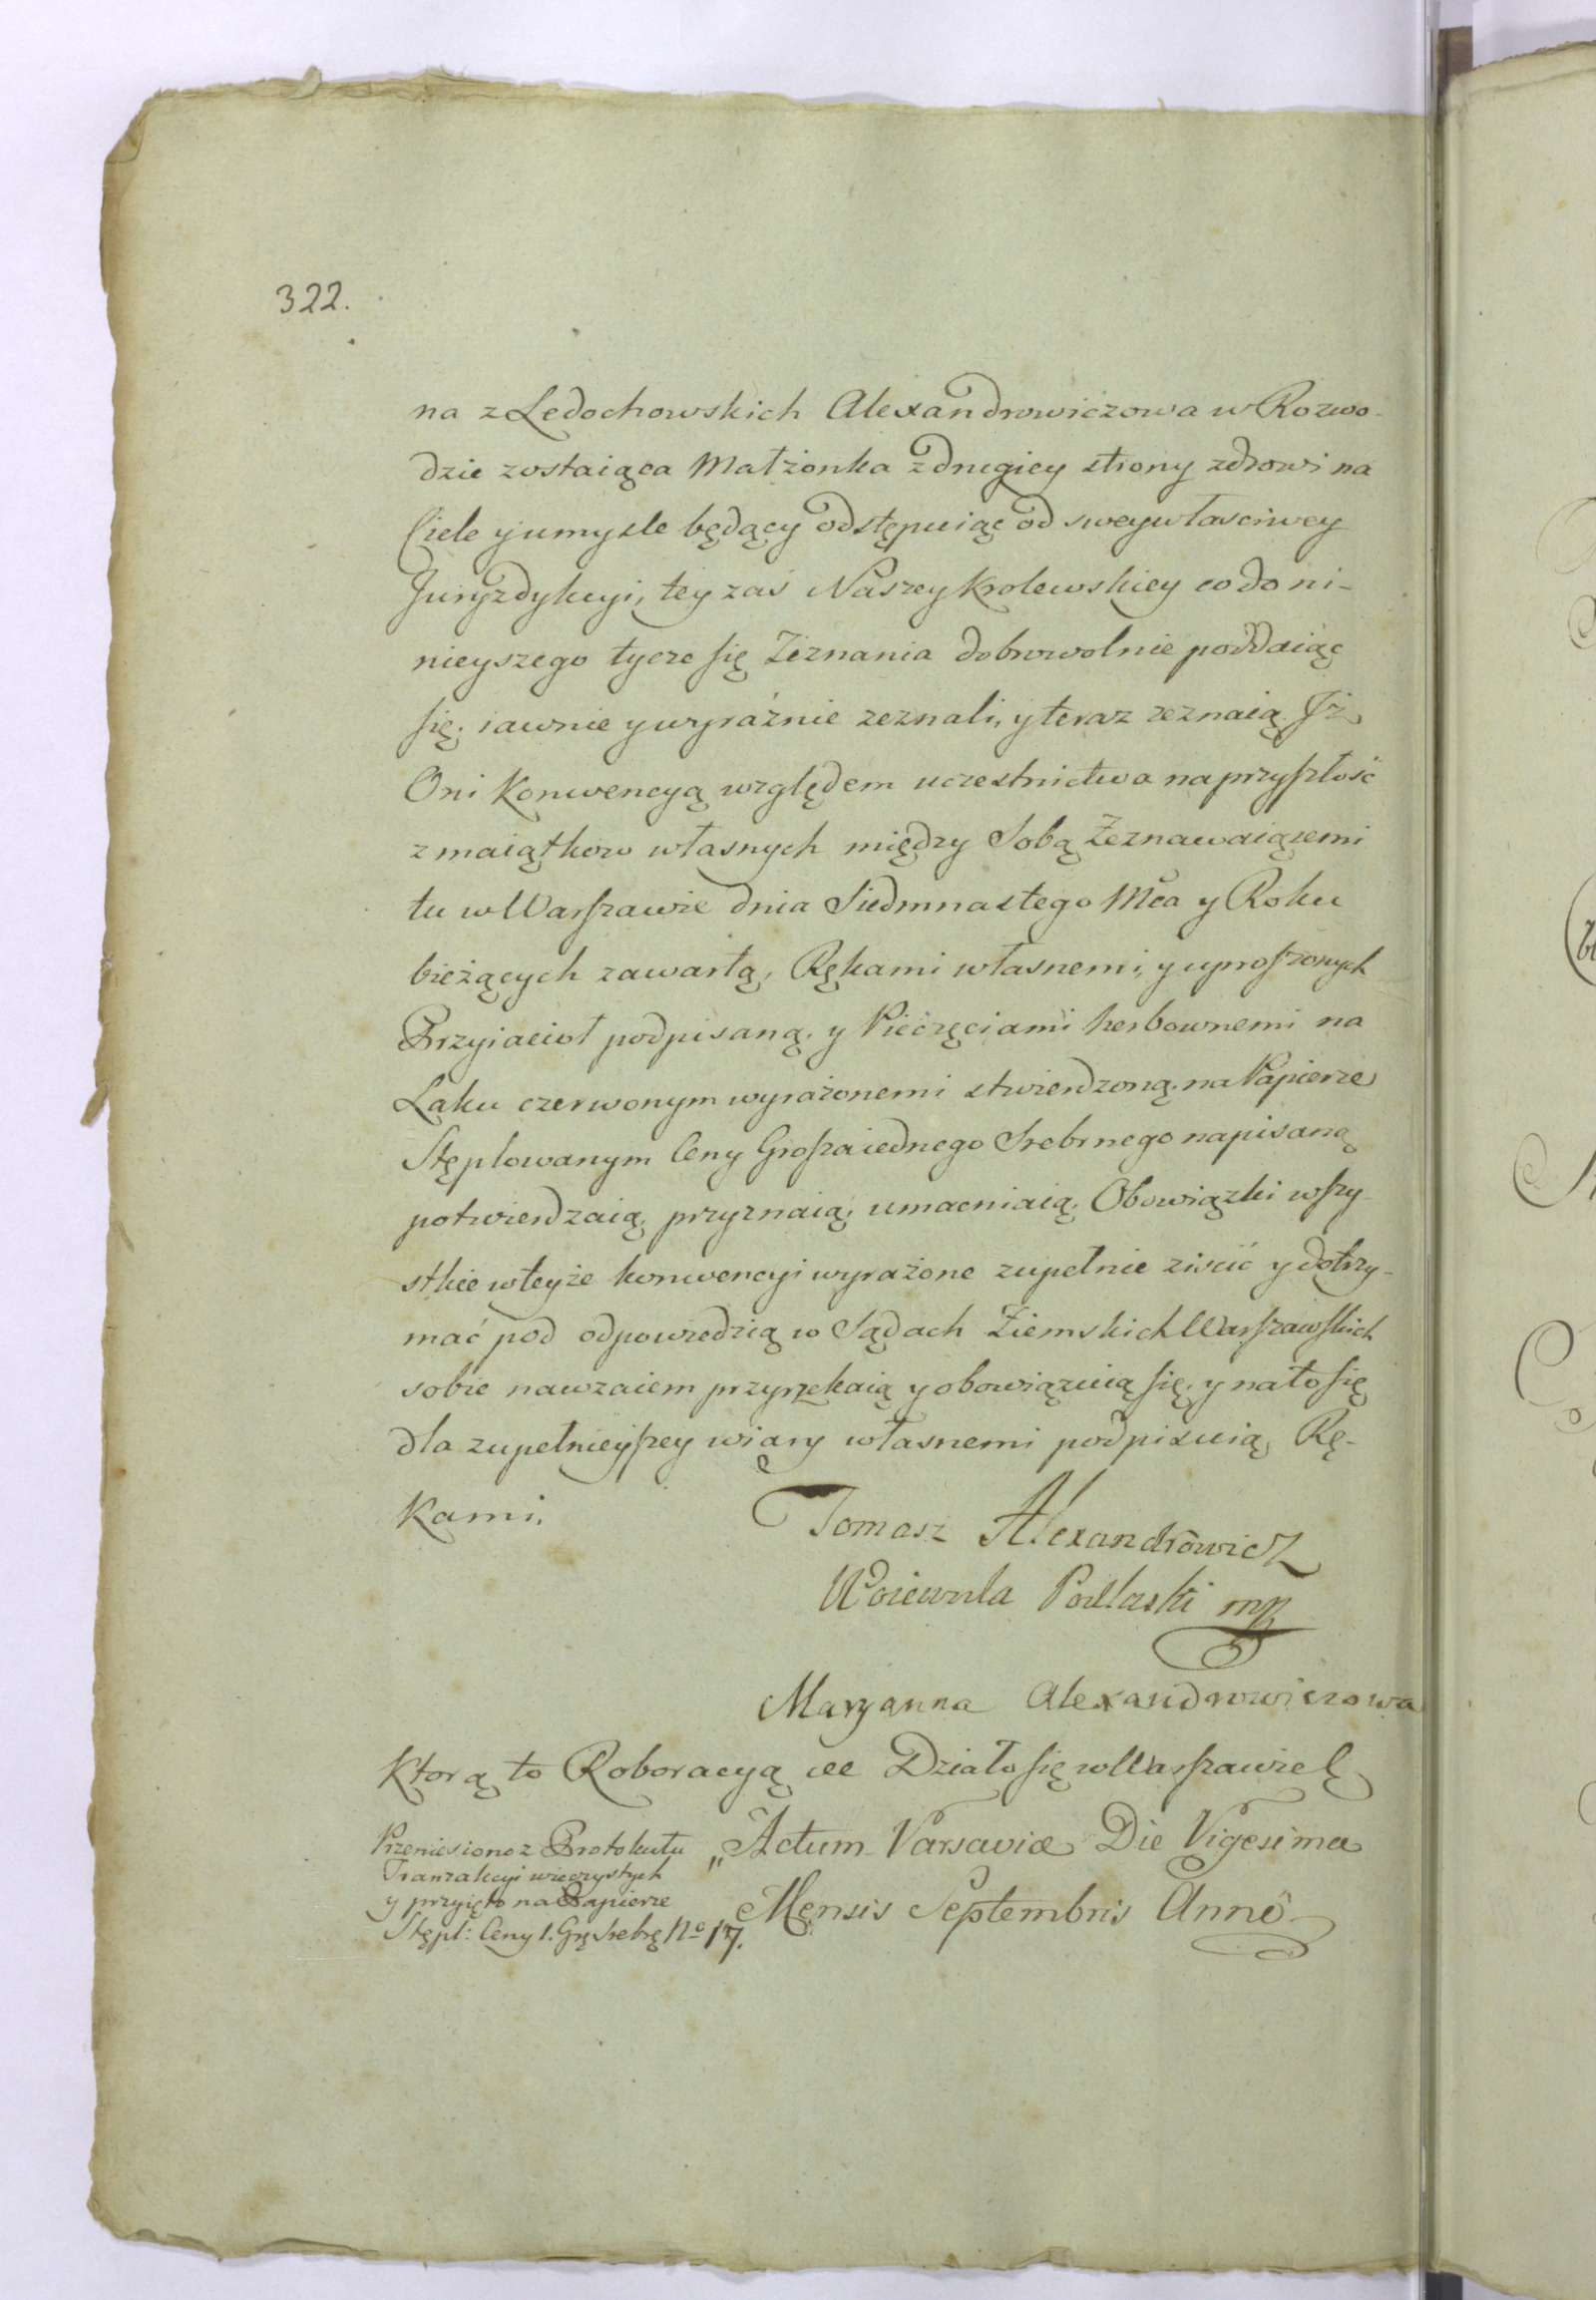 322.
na z Ledochowskich Alexandrowiczowa w Rozwo-
dzie zostaiąca Małżonka z drugiey strony zdrowi na
Ciele y umysle będący odstępuiąc od swey własciwey
Juryzdykcyi, tey zaś Naszey Krolewskiey co do ni-
nieyszego tycze się Zeznania dobrowolnie poddaiąc
się, iawnie y wyraźnie zeznali, y teraz zeznaią Jż
Oni Konwencyą względem uczestnictwa na przyszłość
z maiątkow własnych między Sobą Zeznawaiącemi
tu w Warszawie dnia Siedmnastego Mca y Roku
bieżących zawartą, Rękami własnemi, y uproszonych
Przyiacioł podpisaną, y Pieczęciami herbownemi na
Laku czerwonym wyrażonemi stwierdzoną, na Papierze
Stęplowanym Ceny Grosza iednego Srebrnego napisaną
potwierdzaią, przyznaią, umacniaią, Obowiązki wszy-
stkie w teyże konwencyi wyrażone zupełnie ziscić y dotrzy-
mać pod odpowiedzią w Sądach Ziemskich Warszawskich
sobie nawzaiem przyrzekaią y obowiązuią się, y na to się
dla zupełnieyszey wiary własnemi podpisuią Rę-
kami.
Tomasz Alexandrowicz
Woiewoda Podlaski mp
Maryanna Alexandrowiczowa
Ktorą to Roboracyą etc Działo się w Warszawie
Przeniesiono z Protokułu
Tranzakcyi wieczystych
y przyięto na Papierze
Stępl: Ceny 1. Gr Srebrg No 17.
„Actum Varsaviæ Die Vigesima
Mensis Septembris Annô